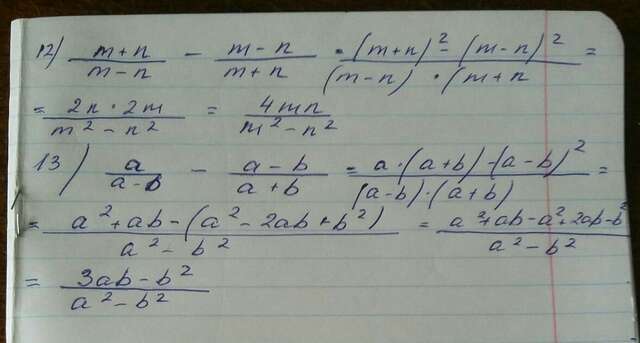 12) (m+n)/(m-n) - (m-n)/(m+n) = ((m+n)² - (m-n)²)/((m-n)·(m+n) =
= (2n·2m)/(m²-n²) = 4mn/(m²-n²)
13) a/(a-b) - (a-b)/(a+b) = (a·(a+b)-(a-b)²)/((a-b)·(a+b)) =
= (a²+ab-(a²-2ab+b²))/(a²-b²) = (a²+ab-a²+2ab-b²)/(a²-b²)
= (3ab-b²)/(a²-b²)